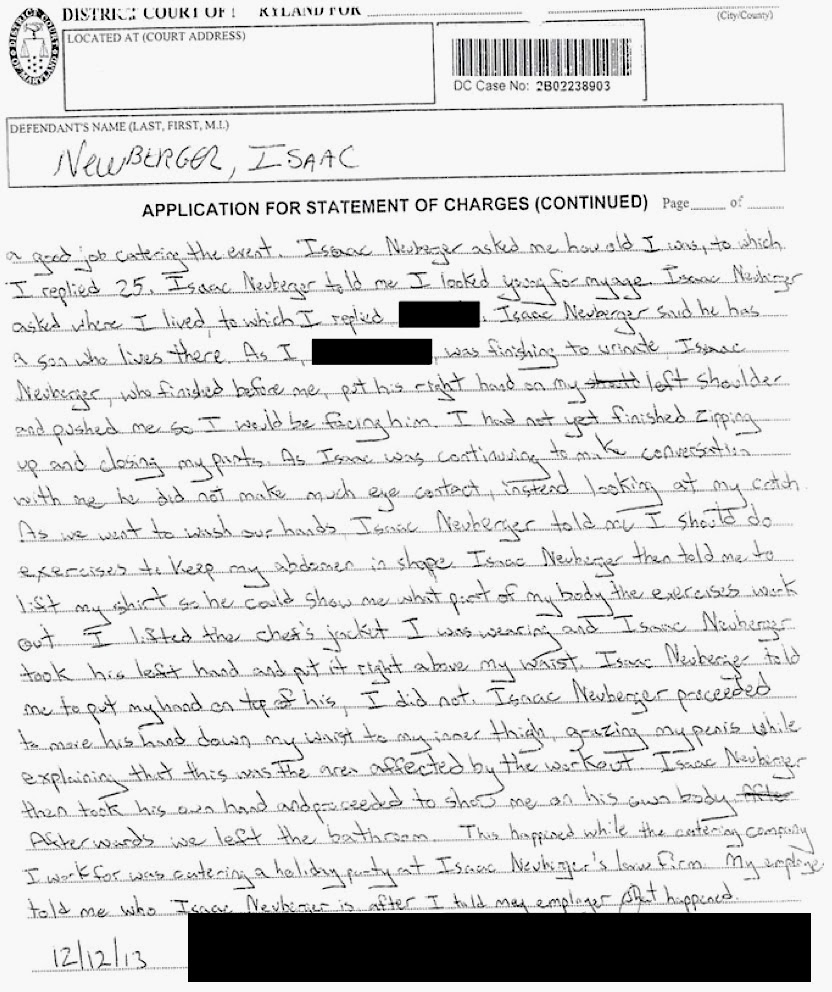 DISTRICT COURT OF RYLAND FOR
(City/County)
LOCATED AT (COURT ADDRESS)
DC Case No: 2B02238903
DEFENDANT'S NAME (LAST, FIRST, M.I.)
NEWBERGER, ISAAC
APPLICATION FOR STATEMENT OF CHARGES (CONTINUED) Page of
a good job catering the event. Isaac Neuberger asked me how old I was, to which
I replied 25. Isaac Neuberger told me I looked young for my age. Isaac Neuberger
asked where I lived, to which I replied . Isaac Neuberger said he has
a son who lives there. As I, , was finishing to urinate, Isaac
Neuberger, who finished before me, put his right hand on my left shoulder
and pushed me so I would be facing him. I had not yet finished zipping
up and closing my pants. As Isaac was continuing to make conversation
with me he did not make much eye contact, instead looking at my crotch.
As we went to wash our hands, Isaac Neuberger told me I should do
exercises to keep my abdomen in shape. Isaac Neuberger then told me to
lift my shirt so he could show me what part of my body the exercises work
out. I lifted the chef's jacket I was wearing and Isaac Neuberger
took his left hand and put it right above my waist. Isaac Neuberger told
me to put my hand on top of his, I did not. Isaac Neuberger proceeded
to move his hand down my waist to my inner thigh, grazing my penis while
explaining that this was the area affected by the workout. Isaac Neuberger
then took his own hand and proceeded to show me on his own body. After
Afterwards we left the bathroom. This happened while the catering company
I work for was catering a holiday party at Isaac Neuberger's law firm. My employer
told me who Isaac Neuberger is after I told my employer what happened.
12/12/13